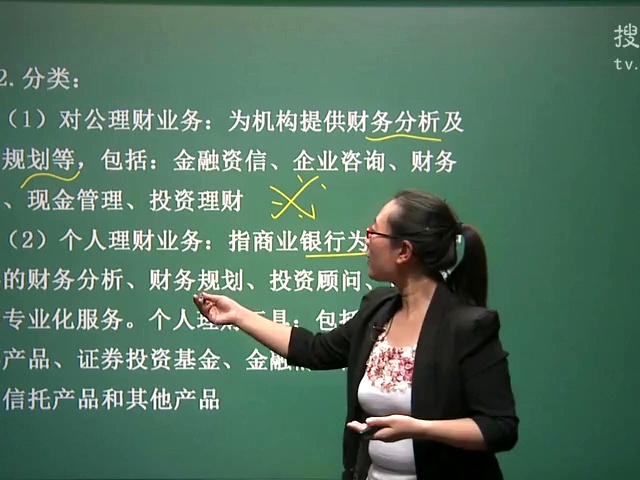 搜
tv.
2.分类：
（1）对公理财业务：为机构提供财务分析及
规划等，包括：金融资信、企业咨询、财务
、现金管理、投资理财
（2）个人理财业务：指商业银行为
的财务分析、财务规划、投资顾问、
专业化服务。个人理财工具：包括
产品、证券投资基金、金融
信托产品和其他产品